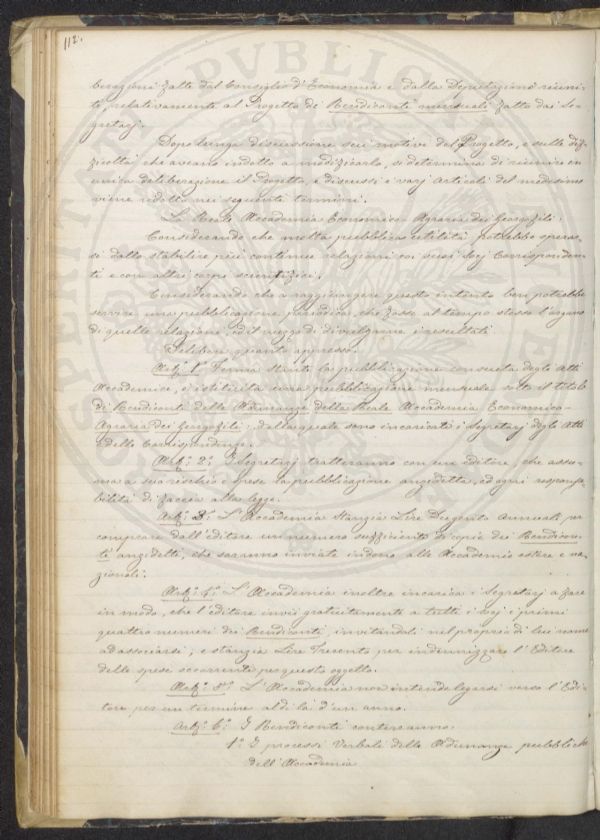 112.
berazioni fatte dal Consiglio d'Economia e dalla Deputazione riuni-
te, relativamente al Progetto de' Rendiconti mensuali fatto dai Se-
gretarj.
Dopo lunga discussione sui motivi del Progetto, e sulle dif-
ficoltà che aveano indotto a modificarlo, si determina di riunire in
unica deliberazione il Progetto, e discussi i varj Articoli del medesimo
viene ridotto nei seguenti termini.
La Reale Accademia Economico-Agraria dei Georgofili:
Considerando che molta pubblica utilità potrebbe sperar-
si dallo stabilire più continue relazioni coi suoi Socj Corrisponden-
ti e con altri corpi scientifici.
Considerando che a raggiungere questo intento ben potrebbe
servire una pubblicazione periodica che fosse al tempo stesso l'organo
di quelle relazioni, ed il mezzo di divulgarne i resultati
Delibera quanto appresso.
Art.° 1.° Ferma stante la pubblicazione consueta degli Atti
Accademici, è istituita una pubblicazione mensuale sotto il titolo
di Rendiconti delle Adunanze della Reale Accademia Economico-
Agraria dei Georgofili: della quale sono incaricati i Segretarj degli Atti
e delle Corrispondenze.
Art.° 2.° I Segretarj tratteranno con un Editore, che assu-
ma a suo rischio e spese la pubblicazione anzidetta, ed ogni responsa-
bilità di faccia alla legge.
Art.° 3.° L'Accademia stanzia Lire Dugento Annuali per
comprare dall'editore un numero sufficiente di copie dei Rendicon-
ti anzidetti, che saranno inviate in dono alle Accademie estere e na-
zionali.
Art.° 4.° L'Accademia inoltre incarica i Segretarj a fare
in modo, che l'editore invii gratuitamente a tutti i Socj i primi
quattro numeri dei Rendiconti, invitandoli nel proprio di lui nome
ad associarsi; e stanzia Lire Trecento per indennizzare l'Editore
delle spese occorrenti per questo oggetto.
Art.° 5.° L'Accademia non intende legarsi verso l'Edi-
tore per un termine al di là d'un anno.
Art.° 6.° I Rendiconti conterranno.
1.° I processi Verbali delle Adunanze pubbliche
dell'Accademia